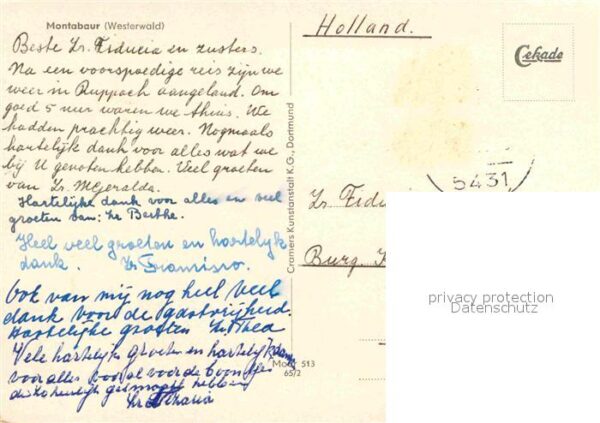 Montabaur (Westerwald)
Beste Zr. Fiducia en zusters.
Na een voorspoedige reis zijn we
weer in Ruppach aangeland. Om
goed 5 uur waren we thuis. We
hadden prachtig weer. Nogmaals
hartelijk dank voor alles wat we
bij U genoten hebben. Veel groeten
van Zr. M. Geralda.
Hartelijke dank voor alles en veel
groeten van: Zr Berthe.
Heel veel groeten en hartelijk
dank. Zr
Ook van mij nog heel veel
dank voor de gastvrijheid.
Hartelijke groeten Zr Thea
Vele hartelijke groeten en hartelijk dank
voor alles vooral voor de boontjes
die hebben
Zr
Cramers Kunstanstalt K.G., Dortmund
Mo 513
65/2
Holland.
Cekade
5431
Zr Fidu
Burg.
privacy protection
Datenschutz